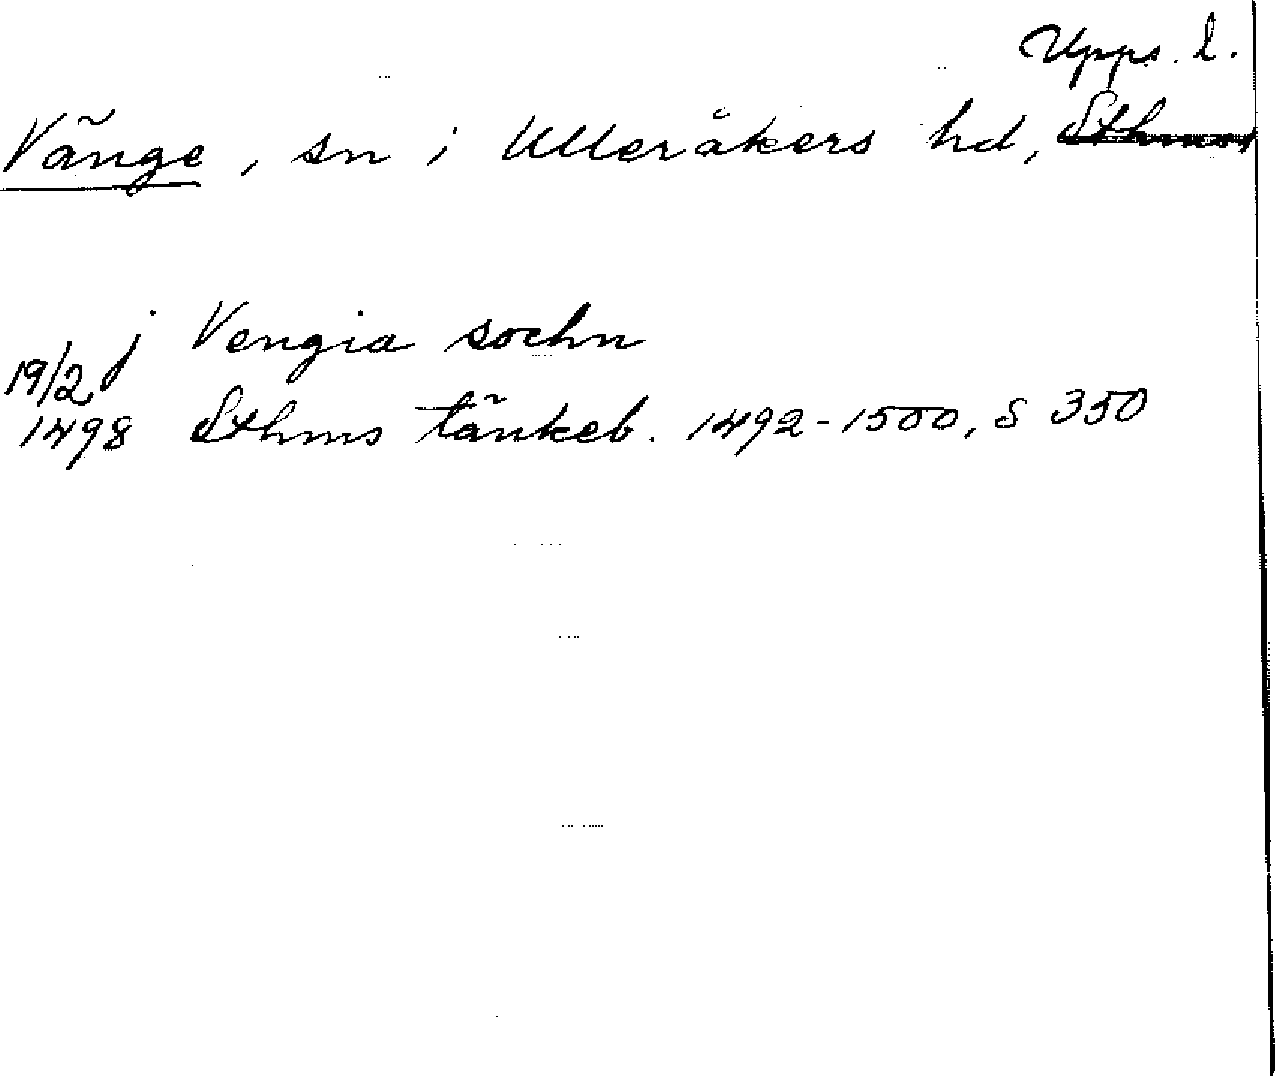 Upps. l.
Vänge, sn i Ulleråkers hd, Sthms
j Vengia sochn
19/2
1498 Sthms tänkeb. 1492-1500, s 350